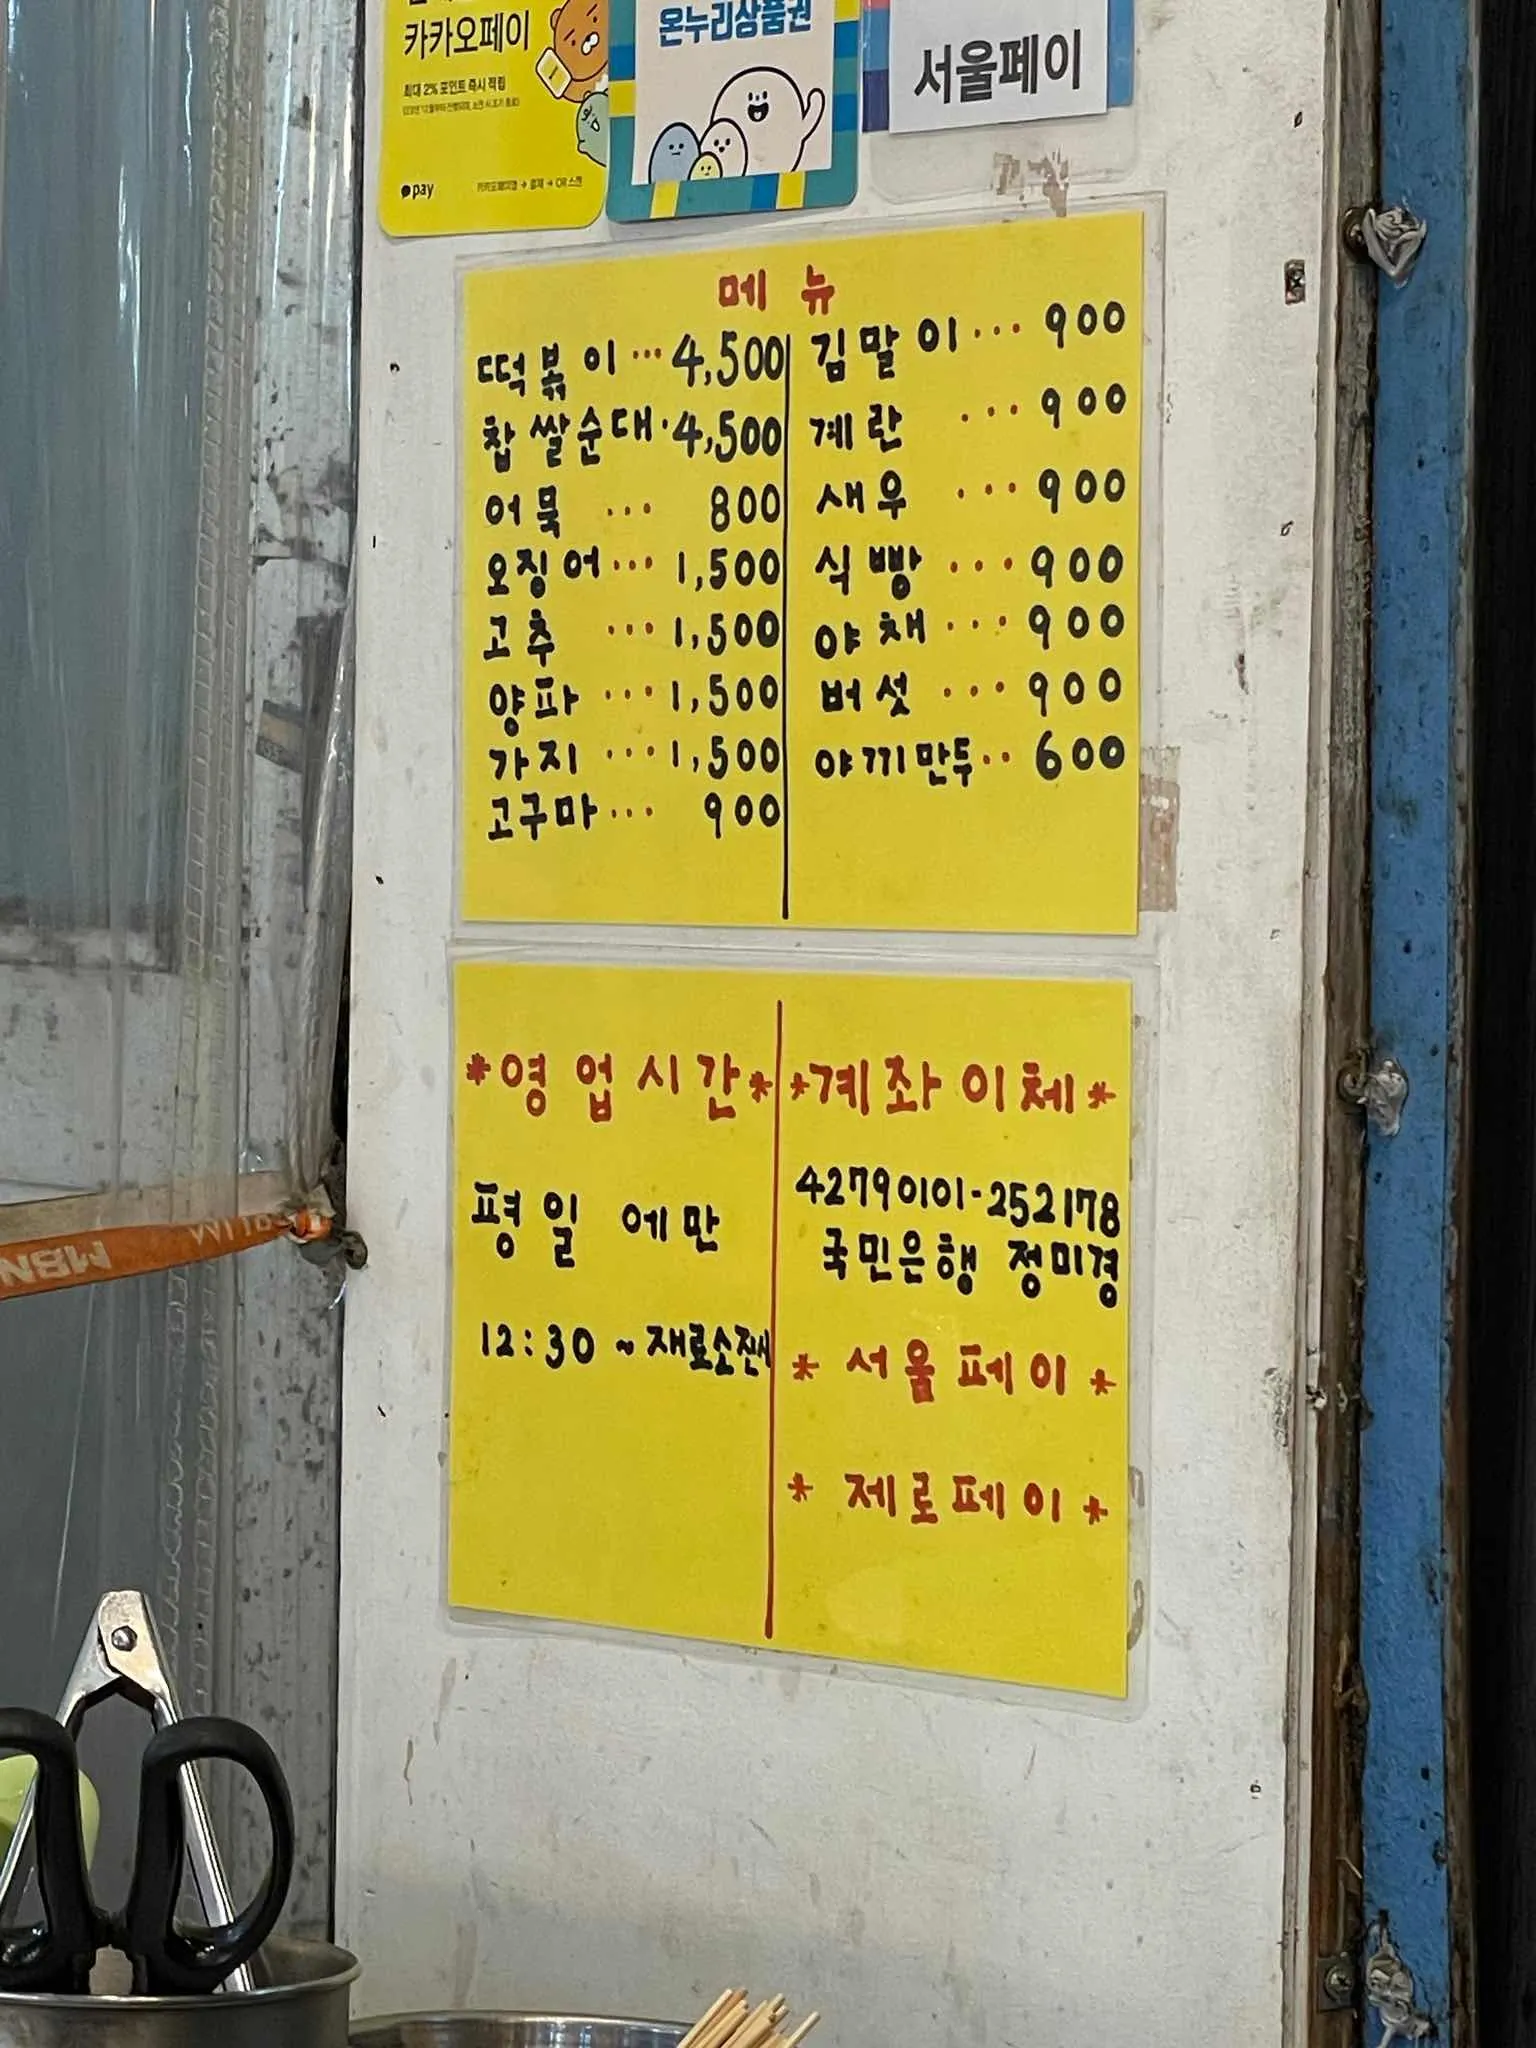 카카오페이
최대 2% 포인트 즉시 적립
pay
카카오페이앱 → 결제 → QR 스캔
온누리상품권
서울페이
메뉴
떡볶이 ··· 4,500
찹쌀순대 · 4,500
어묵 ··· 800
오징어 ··· 1,500
고추 ··· 1,500
양파 ··· 1,500
가지 ··· 1,500
고구마 ··· 900
김말이 ··· 900
계란 ··· 900
새우 ··· 900
식빵 ··· 900
야채 ··· 900
버섯 ··· 900
야끼만두 ·· 600
*영업시간*
평일에만
12:30 ~ 재료소진시
*계좌이체*
42790101-252178
국민은행 정미경
* 서울페이 *
* 제로페이 *
MBN